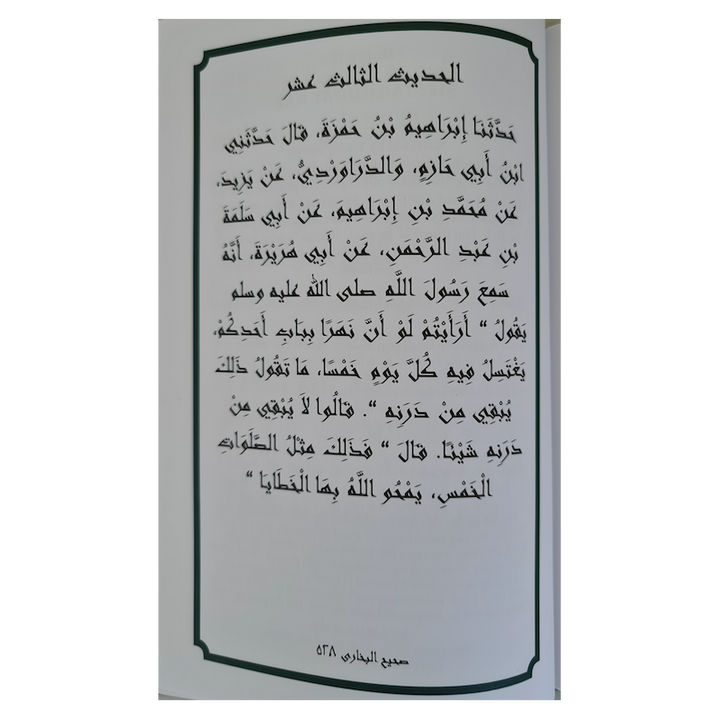 الحديث الثالث عشر
حَدَّثَنَا إِبْرَاهِيمُ بْنُ حَمْزَةَ، قَالَ حَدَّثَنِي
ابْنُ أَبِي حَازِمٍ، وَالدَّرَاوَرْدِيُّ، عَنْ يَزِيدَ،
عَنْ مُحَمَّدِ بْنِ إِبْرَاهِيمَ، عَنْ أَبِي سَلَمَةَ
بْنِ عَبْدِ الرَّحْمَنِ، عَنْ أَبِي هُرَيْرَةَ، أَنَّهُ
سَمِعَ رَسُولَ اللَّهِ صلى الله عليه وسلم
يَقُولُ " أَرَأَيْتُمْ لَوْ أَنَّ نَهَرًا بِبَابِ أَحَدِكُمْ،
يَغْتَسِلُ فِيهِ كُلَّ يَوْمٍ خَمْسًا، مَا تَقُولُ ذَلِكَ
يُبْقِي مِنْ دَرَنِهِ ". قَالُوا لاَ يُبْقِي مِنْ
دَرَنِهِ شَيْئًا. قَالَ " فَذَلِكَ مِثْلُ الصَّلَوَاتِ
الْخَمْسِ، يَمْحُو اللَّهُ بِهَا الْخَطَايَا "
صحيح البخاري ٥٢٨